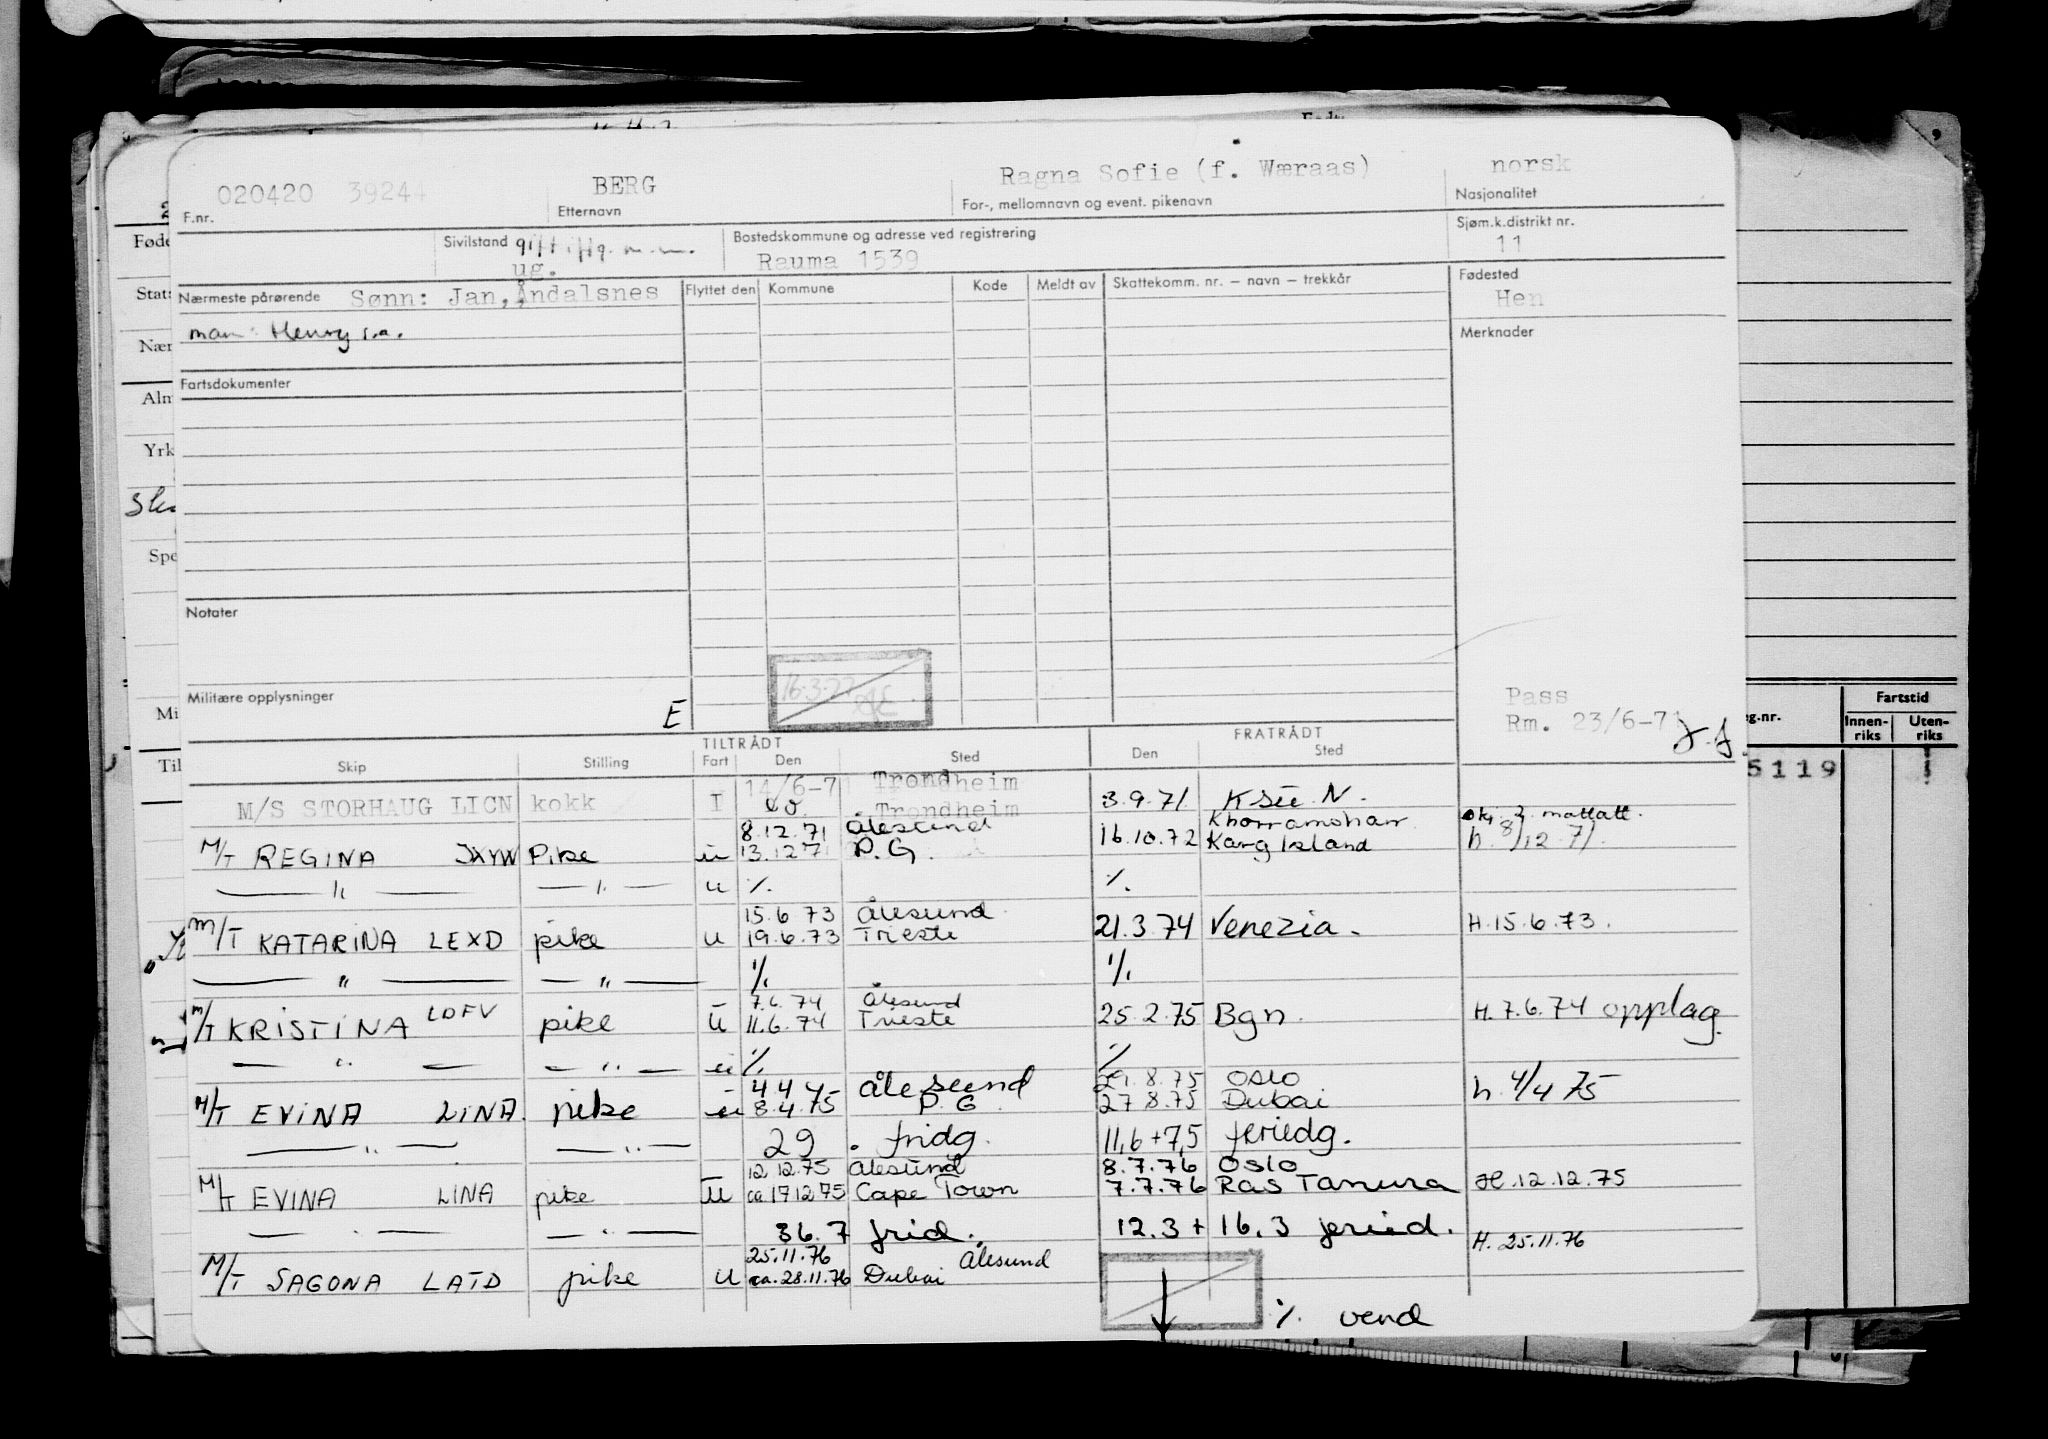 020420 39244 BERG Ragna Sofie (f. Wæraas) norsk
F.nr. Etternavn For-, mellomnavn og event. pikenavn Nasjonalitet
Sivilstand gift ug. Bostedskommune og adresse ved registrering Sjøm.k.distrikt nr.
Rauma 1539 11
Nærmeste pårørende Sønn: Jan, Åndalsnes Flyttet den Kommune Kode Meldt av Skattekomm. nr. – navn – trekkår Fødested
Hen
man: Henry s.a. Merknader
Fartsdokumenter
Notater
Militære opplysninger E
Pass
Rm. 23/6-71
TILTRÅDT FRATRÅDT
Skip Stilling Fart Den Sted Den Sted
14/6-71 Trondheim
M/S STORHAUG LICN kokk I Trondheim 3.9.71 Ksu N.
8.12.71 Ålesund Khorramshar
M/T REGINA JXYW Pike u 13.12.71 P.G. 16.10.72 Karg Island h. 8/12.71
— " — — " — u %. %.
15.6.73 Ålesund
M/T KATARINA LEXD pike u 19.6.73 Trieste 21.3.74 Venezia. H.15.6.73.
— " — — " — %. %.
7.6.74 Ålesund
M/T KRISTINA LDFV pike u 11.6.74 Trieste 25.2.75 Bgn. H.7.6.74 opplag.
— " — — " — u %. %
4.4.75 Ålesund 29.8.75 Oslo
M/T EVINA LINA. pike u 8.4.75 P.G. 27.8.75 Dubai h. 4/4 75
— " — — " — 29. fridg. 11,6+7,5 feriedg.
12.12.75 Ålesund 8.7.76 Oslo
M/T EVINA LINA pike u ca 17.12.75 Cape Town 7.7.76 Ras Tanura H.12.12.75
— " — — " — 36.7 frid. 12.3 + 16.3 feried.
25.11.76 Ålesund H. 25.11.76
M/T SAGONA LATD pike u ca. 28.11.76 Dubai
%. vend
Født
Føde
Stats
Nær
Alm
Yrk
Spe
Mi
Til
g.nr. Fartstid
Innen-riks Uten-riks
5119